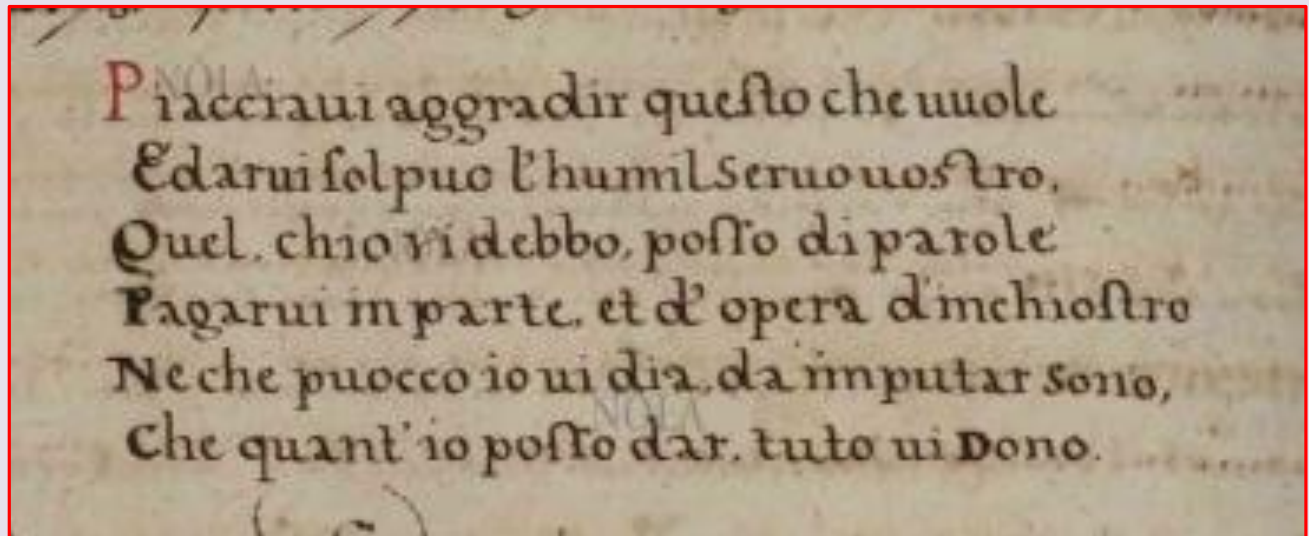 Piacciaui aggradir questo che uuole
Edarui sol puo l'humil Seruo uostro.
Quel. chio vi debbo, posso di parole
Pagarui in parte. et d' opera d'inchiostro
Ne che puocco io ui dia. da imputar Sono,
Che quant' io posso dar. tuto ui Dono.